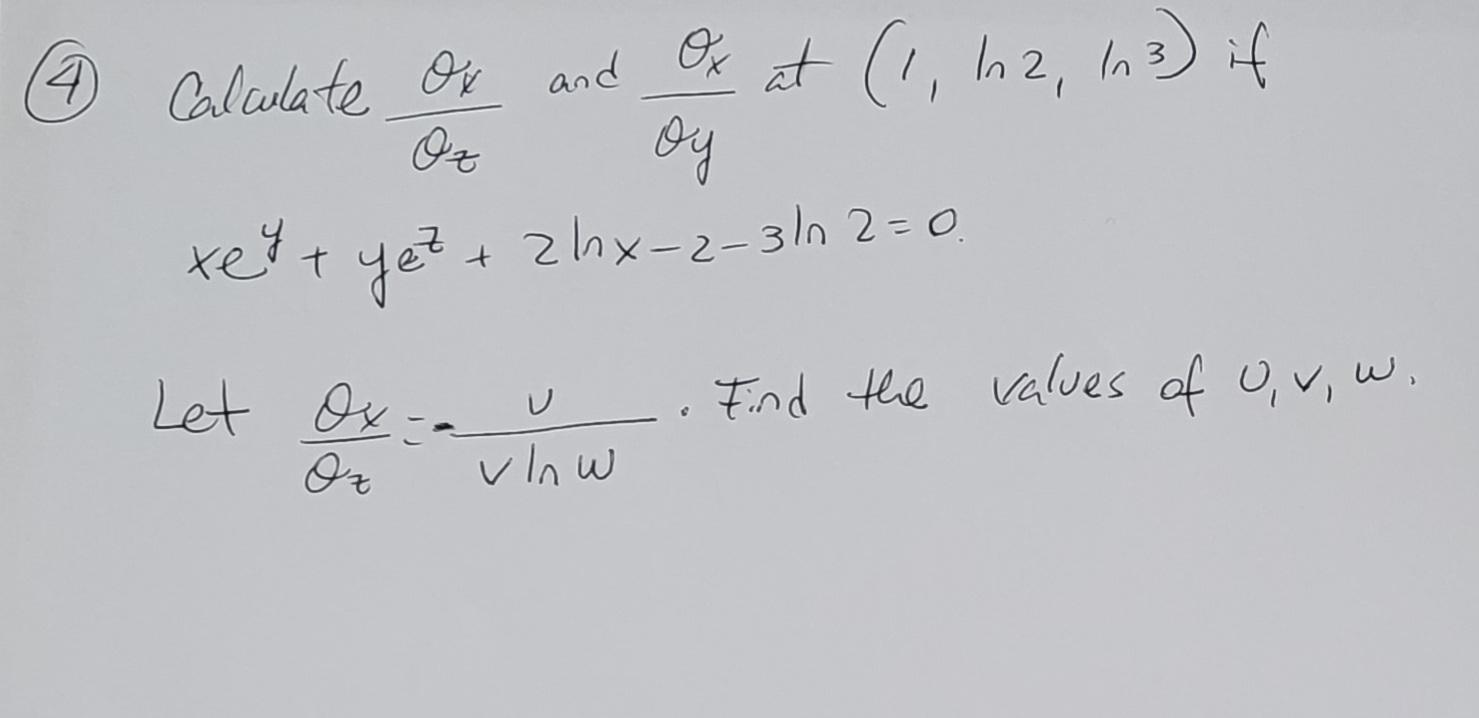 ④ Calculate ∂x/∂z and ∂x/∂y at (1, ln 2, ln 3) if
xe^y + ye^z + 2 ln x - 2 - 3 ln 2 = 0.
Let ∂x/∂z = - U/(V ln W). Find the values of U, V, W.